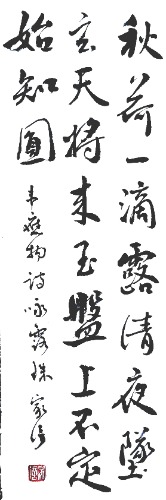 秋荷一滴露清夜墜
玄天將来玉盤上不定
始知圓
韋應物詩咏露珠